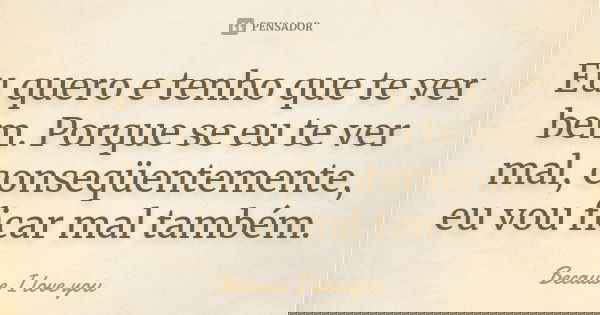 PENSADOR
Eu quero e tenho que te ver
bem. Porque se eu te ver
mal, conseqüentemente,
eu vou ficar mal também.
Because I love you